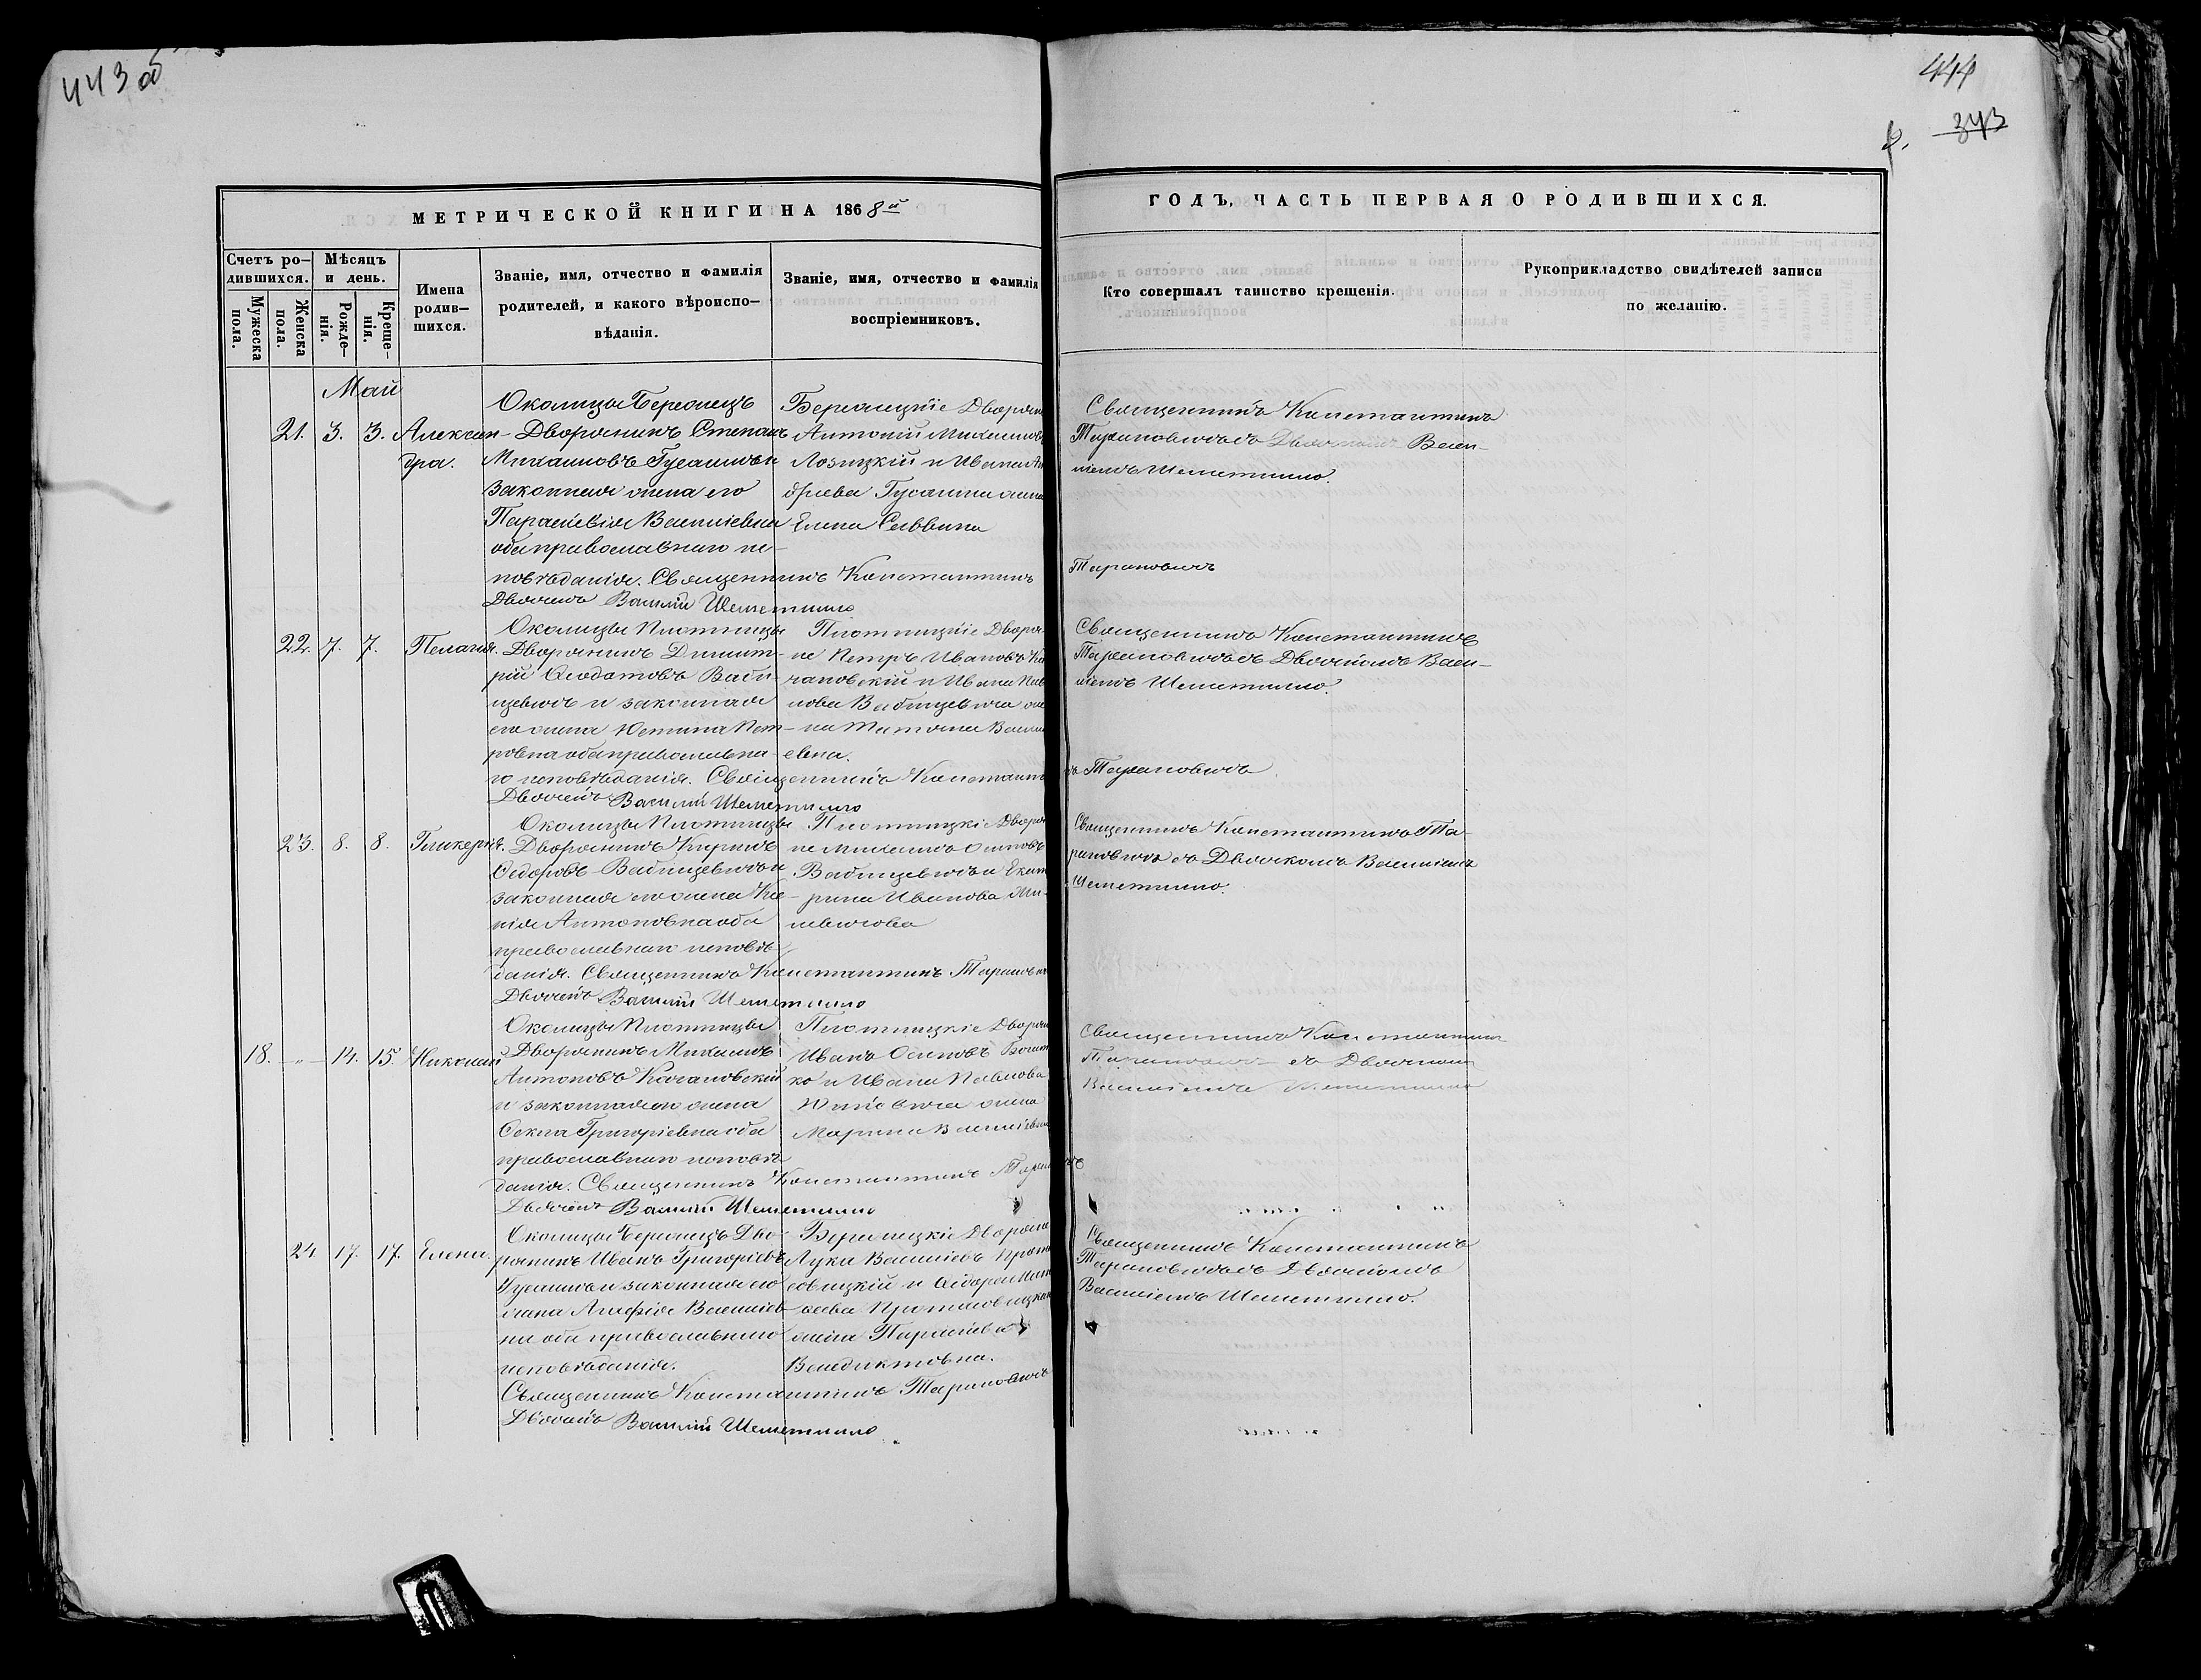 443 об
444
343
МЕТРИЧЕСКОЙ КНИГИ НА 1868й
ГОДЪ, ЧАСТЬ ПЕРВАЯ О РОДИВШИХСЯ.
Счетъ ро-
дившихся.
Мужеска
пола.
Женска
пола.
Мѣсяцъ
и день.
Рожде-
нія.
Креще-
нія.
Имена
родив-
шихся.
Званіе, имя, отчество и фамилія
родителей, и какого вѣроиспо-
вѣданія.
Званіе, имя, отчество и фамилія
воспріемниковъ.
Кто совершалъ таинство крещенія.
Рукоприкладство свидѣтелей записи
по желанію.
Май
21. 3. 3. Алексан-
дра.
Околицы
Дворянинъ Степанъ
Михаиловъ и
законная жена его
Параскевія Василіевна
оба православнаго ис-
повѣданія. Священникъ Константинъ Тарановичъ
Дьячекъ Василій Шеметилло
Дворяне
Антоній Михаиловъ
Лозицкій и Ивана Ан-
дреева жена
Елена Саввина
Священникъ Константинъ
Тарановичъ съ Васи-
ліемъ Шеметилло.
22. 7. 7. Пелагія.
Околицы Плотницы
Дворянинъ Димит-
рій Ѳеодотовъ Ваби-
щевичъ и законная
его жена Юстина Пет-
ровна оба православна-
го исповѣданія. Священникъ Константинъ Тарановичъ
Дьячекъ Василій Шеметилло
Плотницкіе Дворя-
не Петръ Ивановъ Ка-
чановскій и Ивана Пав-
лова Вабищевича же-
на Татіана Васили-
евна.
Священникъ Константинъ
Тарановичъ съ Дьячкомъ Васи-
ліемъ Шеметилло.
23. 8. 8. Гликерія.
Околицы Плотницы
Дворянинъ Кириллъ
Ѳедоровъ Вабищевичъ и
законная его жена Ксе-
нія Антоновна оба
православнаго исповѣ-
данія. Священникъ Константинъ Тарановичъ
Дьячекъ Василій Шеметилло
Плотницкіе Дворя-
не Михаилъ Осиповъ
Вабищевичъ и Екате-
рина Иванова
Священникъ Константинъ Та-
рановичъ съ Дьячкомъ Василіемъ
Шеметилло.
18. - " - 14. 15. Николай
Околицы Плотницы
Дворянинъ Михаилъ
Антоновъ Качановскій
и законная его жена
Ѳекла Григоріевна оба
православнаго исповѣ-
данія. Священникъ Константинъ Тарановичъ
Дьячекъ Василій Шеметилло
Плотницкіе Дворяне
Иванъ Осиповъ
и Ивана Павлова
жена
Марина Василіевна
Священникъ Константинъ
съ Дьячкомъ
Василіемъ Шеметилло
24 17. 17. Елена.
Околицы Дво-
рянинъ Иванъ Григоріевъ
и законная его
жена Василіев-
на оба православнаго
исповѣданія.
Священникъ Константинъ Тарановичъ
Дьячекъ Василій Шеметилло
Дворяне
Лука Василіевъ Прота-
совицкій и
Протасовицкаго
жена Параскева
Венедиктовна.
Священникъ Константинъ
Тарановичъ съ Дьячкомъ
Василіемъ Шеметилло.